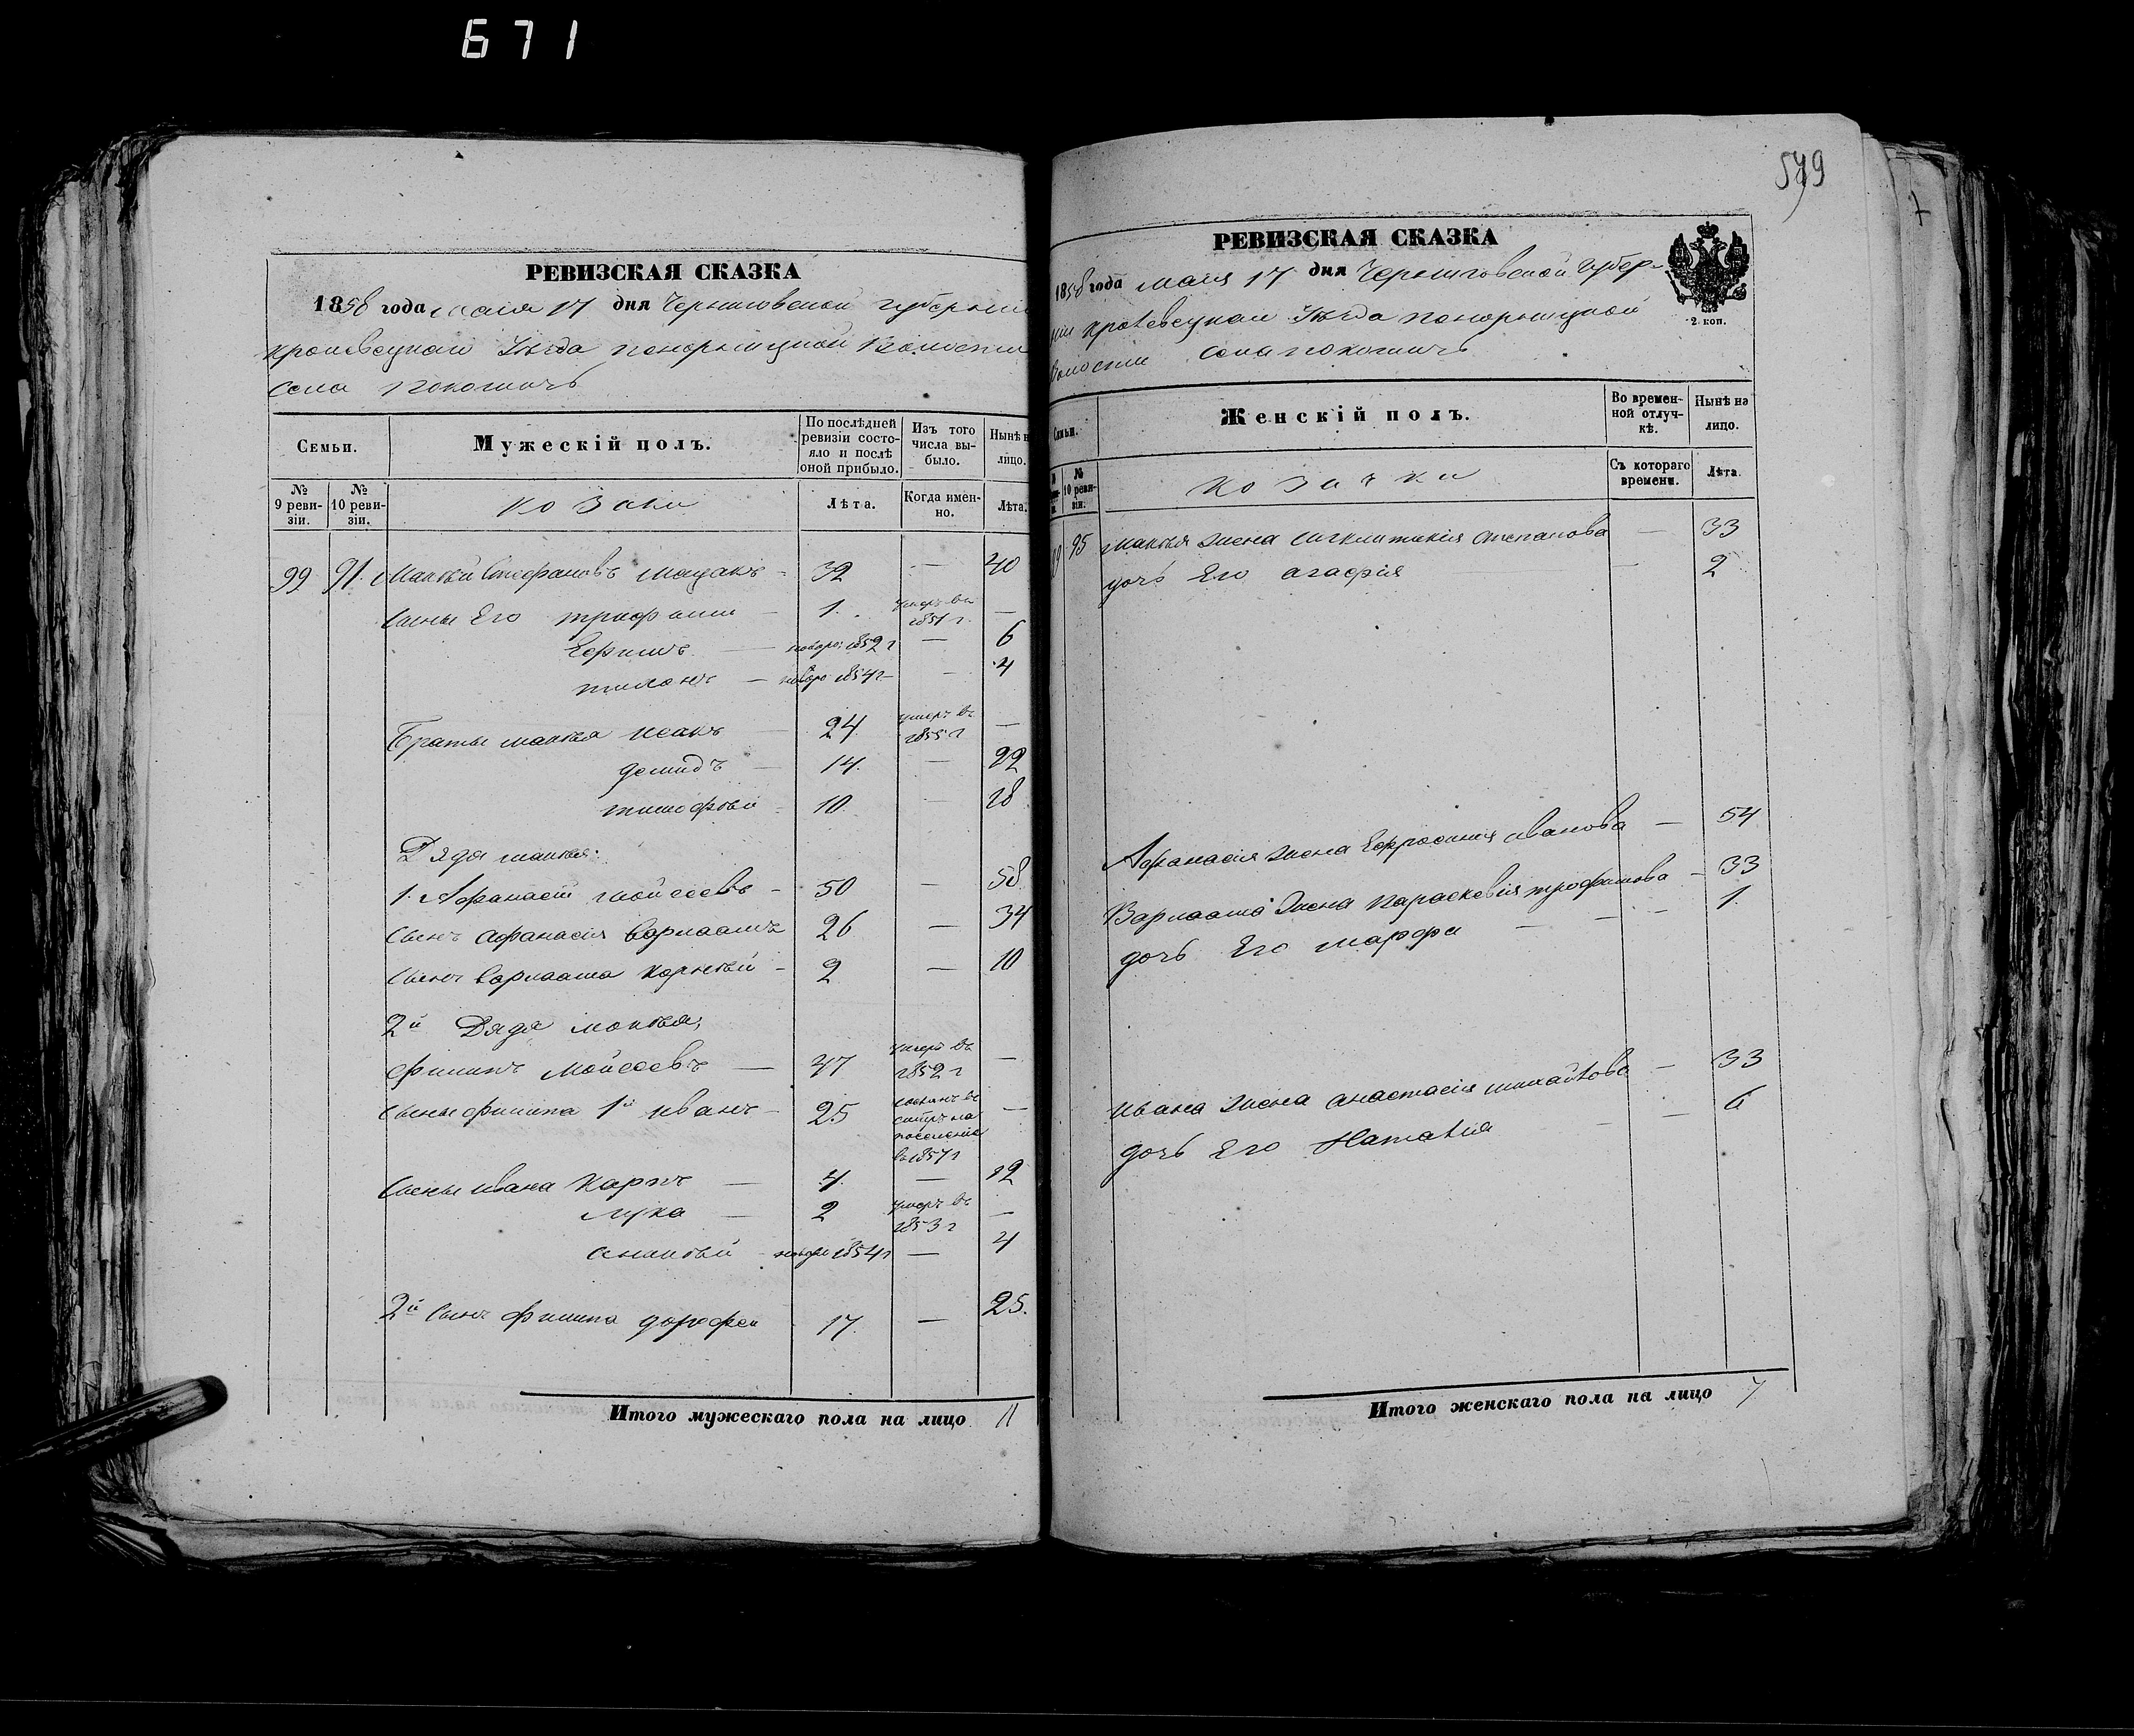 671
579
РЕВИЗСКАЯ СКАЗКА
1858 года Маія 17 дня Черниговской губерніи
Кролевецкаго Уѣзда Понорницкой Волости
Села Покошичъ
Семьи.
Мужескій полъ.
По послѣдней ревизіи состояло и послѣ оной прибыло.
Изъ того числа выбыло.
Нынѣ на лицо.
№ 9 ревизіи.
№ 10 ревизіи.
Козаки
Лѣта.
Когда именно.
Лѣта.
99 91. Мокѣй Стефановъ - 32 — 40
Сыны Его Трифонъ — 1. умеръ въ 1851 г. —
Ефимъ — новоро: 1852 г — 6
Тихонъ — новоро 1854 г — 4
Браты Мокѣя Исакъ — 24 умеръ въ 1855 г —
Демидъ — 14. — 22
Тимофѣй - 10. — 18
Дядя Мокѣя:
1. Афанасій Мойсеевъ - 50 — 58
Сынъ Афанасія Варлаамъ 26 — 34
Сынъ Варлаама Корнѣй - 2 — 10
2й Дядя Мокѣя;
Филипъ Мойсеевъ — 47 умеръ въ 1852 г —
Сыны Филипа 1й Иванъ - 25 сосланъ въ на поселеніе в 1857 г —
Сыны Ивана Карпъ — 4. — 12
Лука — 2 умеръ въ 1853 г —
новоро 1854 г — 4
2й Сынъ Филипа Дорофей 17. — 25.
Итого мужескаго пола на лицо 11
РЕВИЗСКАЯ СКАЗКА
1858 года Маія 17 дня Черниговской Губер-
ніи Кролевецкаго Уѣзда Понорницкой
Волости Села Покошичъ
2 коп.
Семьи.
Женскій полъ.
Во временной отлучкѣ.
Нынѣ на лицо.
№ 10 ревизіи.
Козачки
Съ котораго времени.
Лѣта.
95 Мокѣя жена Степанова — 33
дочь Его Агафія — 2
Афанасія жена Ефросинія Иванова — 54
Варлаама жена Параскевія Трофимова — 33
дочь Его Марфа — — 1.
Ивана жена Анастасія Михайлова — 33
дочь Его Наталія — — 6
Итого женскаго пола на лицо 7